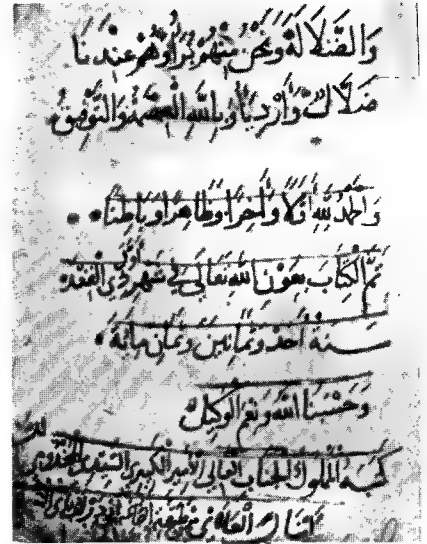 وَالضَّلَالَةِ وَنَحْنُ مِنْهُمْ بُرَآءُ وَهُمْ عِنْدَنَا
ضُلَّالٌ وَأَرْدِيَاءُ وَبِاللَّهِ الْعِصْمَةُ وَالتَّوْفِيقُ
وَالْحَمْدُ لِلَّهِ أَوَّلًا وَآخِرًا وَظَاهِرًا وَبَاطِنًا
تَمَّ الْكِتَابُ بِعَوْنِ اللَّهِ تَعَالَى فِي شَهْرِ ذِي الْقَعْدَةِ
سنة احدى وثمانين وثمان مائة
وَحَسْبُنَا اللَّهُ وَنِعْمَ الْوَكِيلُ
كتبه المملوك الجناب العالي الأمير الكبيري السيدي